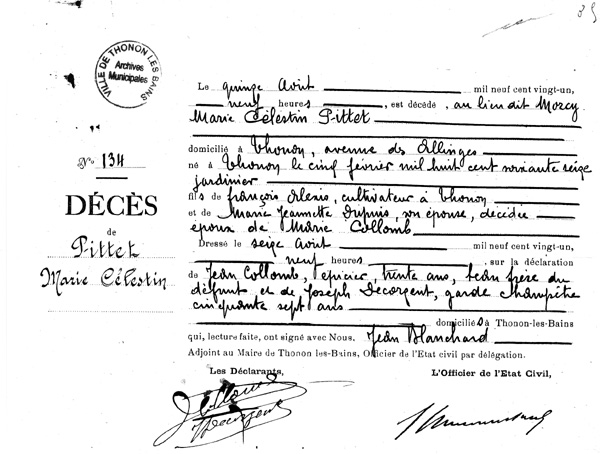 85
VILLE DE THONON LES BAINS
Archives
Municipales
Le quinze Août mil neuf cent vingt-un,
neuf heures, est décédé, au lieu dit Morcy
Marie Célestin Pittet
domicilié à Thonon, avenue des Allinges
né à Thonon le cinq février mil huit cent soixante seize
jardinier
fils de françois Alexis, cultivateur à Thonon
et de Marie Jeannette Dupuis, son épouse, décédée
époux de Marie Collomb
Dressé le seize Août mil neuf cent vingt-un,
neuf heures, sur la déclaration
de Jean Collomb, épicier, trente ans, beau frère du
défunt et de Joseph Decorgent, garde champêtre
cinquante sept ans
domiciliés à Thonon-les-Bains
qui, lecture faite, ont signé avec Nous. Jean Blanchard
Adjoint au Maire de Thonon les-Bains, Officier de l'Etat civil par délégation.
Les Déclarants,
L'Officier de l'Etat Civil,
J Collomb
JDecorgent
N° 134
DÉCÈS
de
Pittet
Marie Célestin